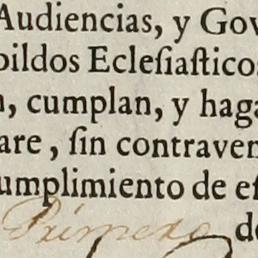 Audiencias, y Gov
bildos Eclesiaſticos
n, cumplan, y haga
are, ſin contraven
umplimiento de eſ
Primero de